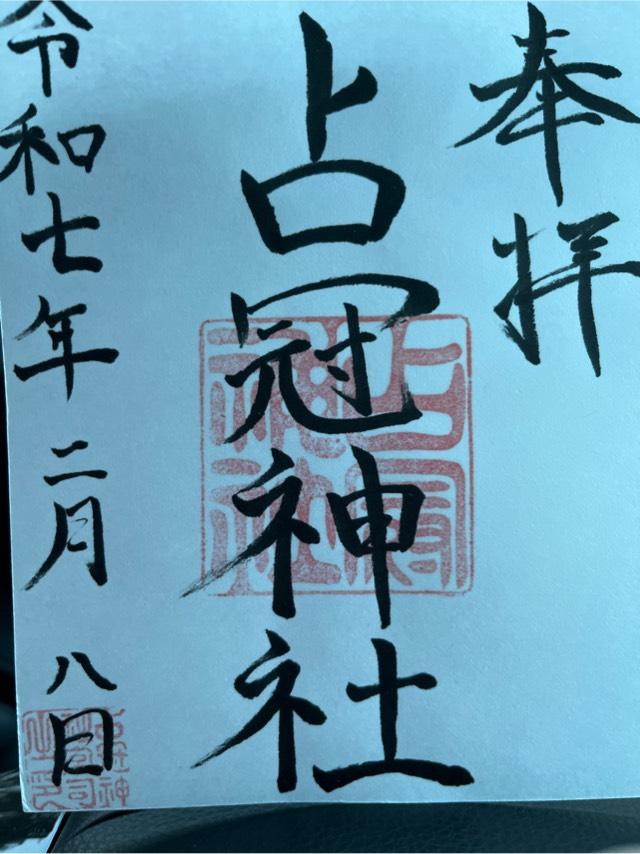 奉拝
占冠神社
占冠神社
令和七年二月八日